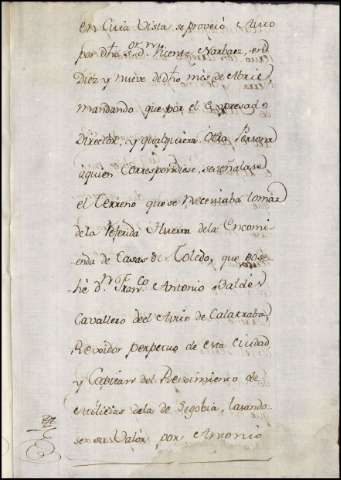 en Cuia Vista, se proveió Auto
por dho Sor. Dn. Vicente Narbaez, en
Diez y nueve de dho mes de Abril
mandando que por el Expresado
Director, y qualquiera otra Persona
aquien Correspondiese, se señalase
el Terreno que se Necesitaba tomar
dela Referida Huerta dela Encomi
enda de Casas de Toledo, que pose
hé Dn. Franco. Antonio
Cavallero del Avito de Calatraba
Regidor perpetuo de esta Ciudad
y Capitan del Regimiento de
Milicias dela de Segobia, tasando
se su Valor por Antonio